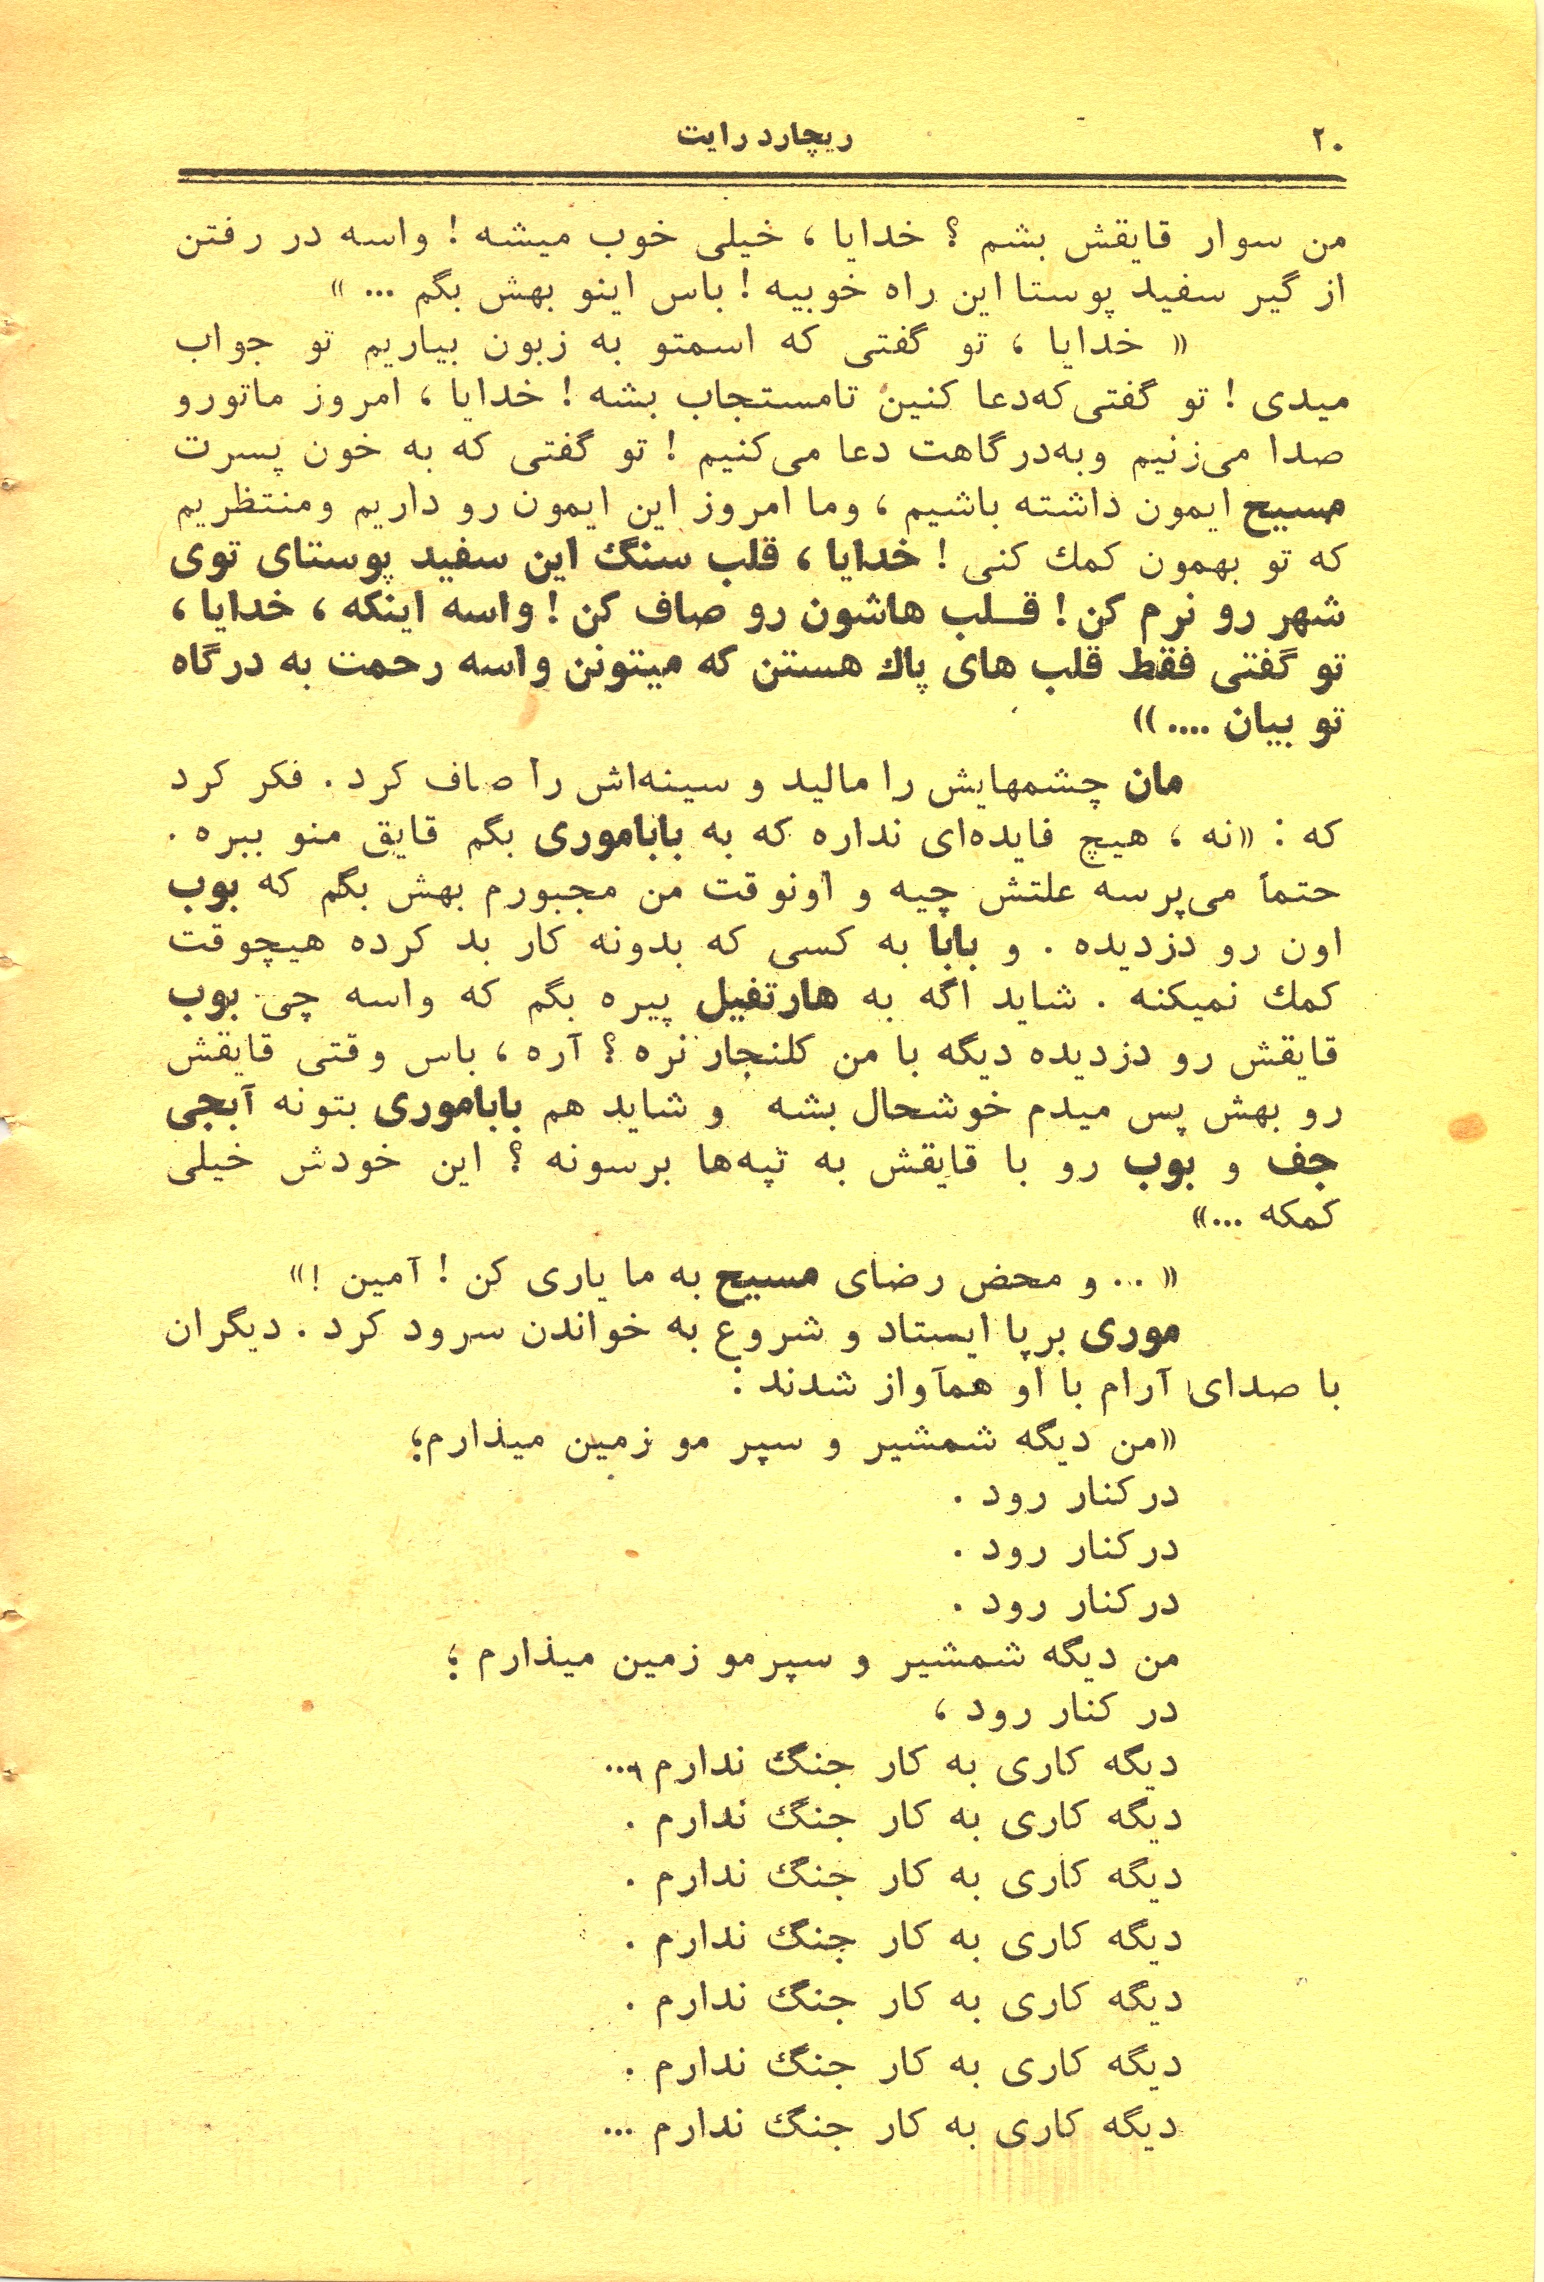 ۲۰
ریچارد رایت
من سوار قایقش بشم ؟ خدایا ، خیلی خوب میشه ! واسه در رفتن
از گیر سفید پوستا این راه خوبیه ! باس اینو بهش بگم ... »
« خدایا ، تو گفتی که اسمتو به زبون بیاریم تو جواب
میدی ! تو گفتی که‌دعا کنین تامستجاب بشه ! خدایا ، امروز ماتورو
صدا می‌زنیم وبه‌درگاهت دعا می‌کنیم ! تو گفتی که به خون پسرت
مسیح ایمون داشته باشیم ، وما امروز این ایمون رو داریم ومنتظریم
که تو بهمون کمك کنی ! خدایا ، قلب سنگ این سفید پوستای توی
شهر رو نرم کن ! قلب هاشون رو صاف کن ! واسه اینکه ، خدایا ،
تو گفتی فقط قلب های پاك هستن که میتونن واسه رحمت به درگاه
تو بیان .... »
مان چشمهایش را مالید و سینه‌اش را صاف کرد . فکر کرد
که : «نه ، هیچ فایده‌ای نداره که به باباموری بگم قایق منو ببره .
حتماً می‌پرسه علتش چیه و اونوقت من مجبورم بهش بگم که بوب
اون رو دزدیده . و بابا به کسی که بدونه کار بد کرده هیچوقت
کمك نمیکنه . شاید اگه به هارتفیل پیره بگم که واسه چی بوب
قایقش رو دزدیده دیگه با من کلنجار نره ؟ آره ، باس وقتی قایقش
رو بهش پس میدم خوشحال بشه و شاید هم باباموری بتونه آبجی
جف و بوب رو با قایقش به تپه‌ها برسونه ؟ این خودش خیلی
کمکه ...»
« ... و محض رضای مسیح به ما یاری کن ! آمین !»
موری برپا ایستاد و شروع به خواندن سرود کرد . دیگران
با صدای آرام با او همآواز شدند :
«من دیگه شمشیر و سپر مو زمین میذارم؛
درکنار رود .
درکنار رود .
درکنار رود .
من دیگه شمشیر و سپرمو زمین میذارم ؛
در کنار رود ،
دیگه کاری به کار جنگ ندارم ...
دیگه کاری به کار جنگ ندارم .
دیگه کاری به کار جنگ ندارم .
دیگه کاری به کار جنگ ندارم .
دیگه کاری به کار جنگ ندارم .
دیگه کاری به کار جنگ ندارم .
دیگه کاری به کار جنگ ندارم ...